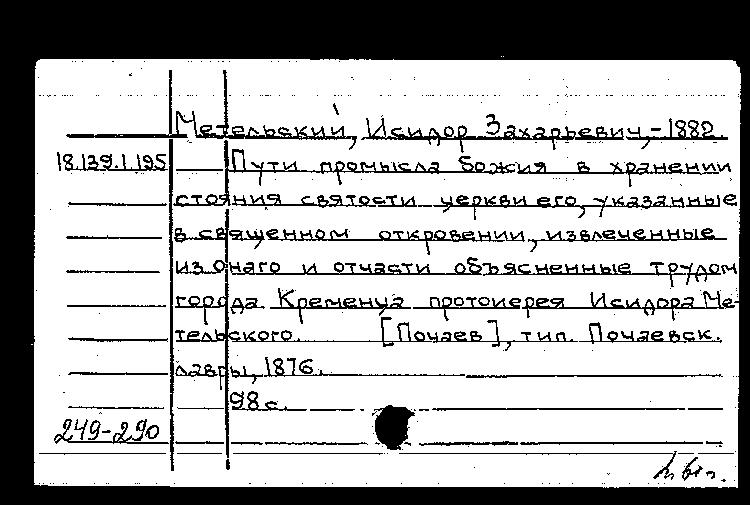 Метельский, Исидор Захарьевич, - 1882.
18.139.1.195 Пути промысла божия в хранении
стояния святости церкви его, указанные
в священном откровении, извлеченные
из онаго и отчасти объясненные трудом
города Кременца протоиерея Исидора Ме-
тельского. [Почаев], тип. Почаевск.
лавры, 1876.
98 с.
249-290